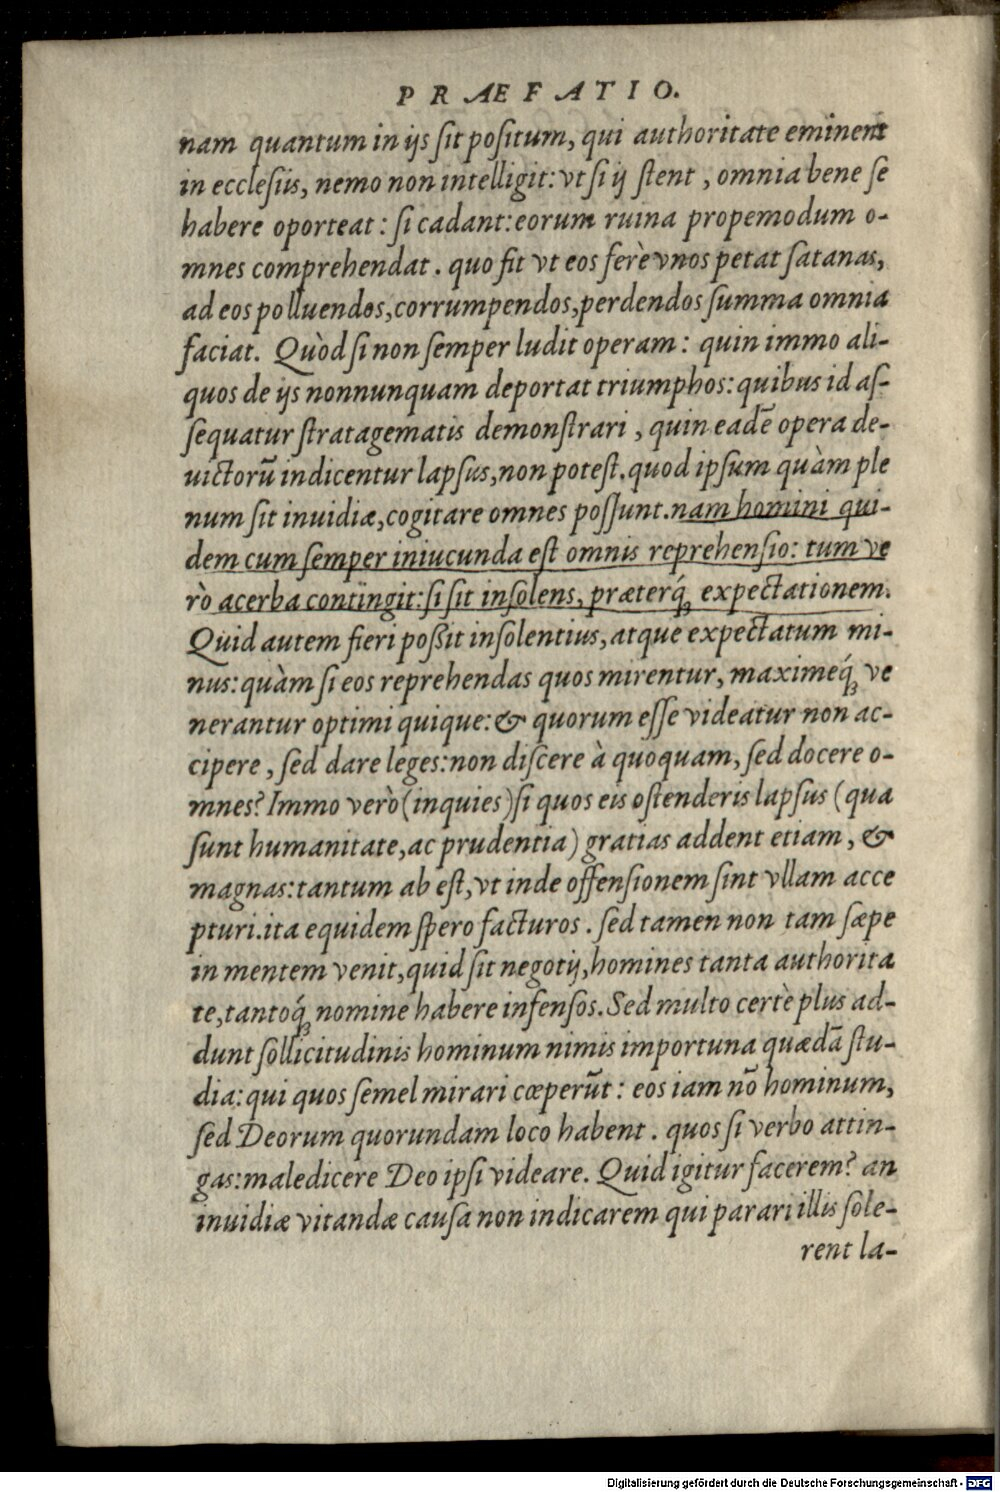 PRÆFATIO.
nam quantum in ijs sit positum, qui authoritate eminent
in ecclesiis, nemo non intelligit: vt si ij stent, omnia bene se
habere oporteat: si cadant: eorum ruina propemodum o-
mnes comprehendat. quo fit vt eos ferè vnos petat satanas,
ad eos polluendos, corrumpendos, perdendos summa omnia
faciat. Quòd si non semper ludit operam: quin immo ali-
quos de ijs nonnunquam deportat triumphos: quibus id as-
sequatur stratagematis demonstrari, quin eadē opera de-
uictorū indicentur lapsus, non potest. quod ipsum quàm ple
num sit inuidiæ, cogitare omnes possunt. nam homini qui-
dem cum semper iniucunda est omnis reprehensio: tum ve
rò acerba contingit: si sit insolens, præterq́; expectationem.
Quid autem fieri poßit insolentius, atque expectatum mi-
nus: quàm si eos reprehendas quos mirentur, maximeq́; ve
nerantur optimi quique: & quorum esse videatur non ac-
cipere, sed dare leges: non discere à quoquam, sed docere o-
mnes? Immo verò (inquies) si quos eis ostenderis lapsus (qua
sunt humanitate, ac prudentia) gratias addent etiam, &
magnas: tantum ab est, vt inde offensionem sint vllam acce
pturi. ita equidem spero facturos. sed tamen non tam sæpe
in mentem venit, quid sit negotij, homines tanta authorita
te, tantoq́; nomine habere infensos. Sed multo certè plus ad-
dunt sollicitudinis hominum nimis importuna quædā stu-
dia: qui quos semel mirari cœperūt: eos iam nō hominum,
sed Deorum quorundam loco habent. quos si verbo attin-
gas: maledicere Deo ipsi videare. Quid igitur facerem? an
inuidiæ vitandæ causa non indicarem qui parari illis sole-
rent la-
Digitalisierung gefördert durch die Deutsche Forschungsgemeinschaft - DFG